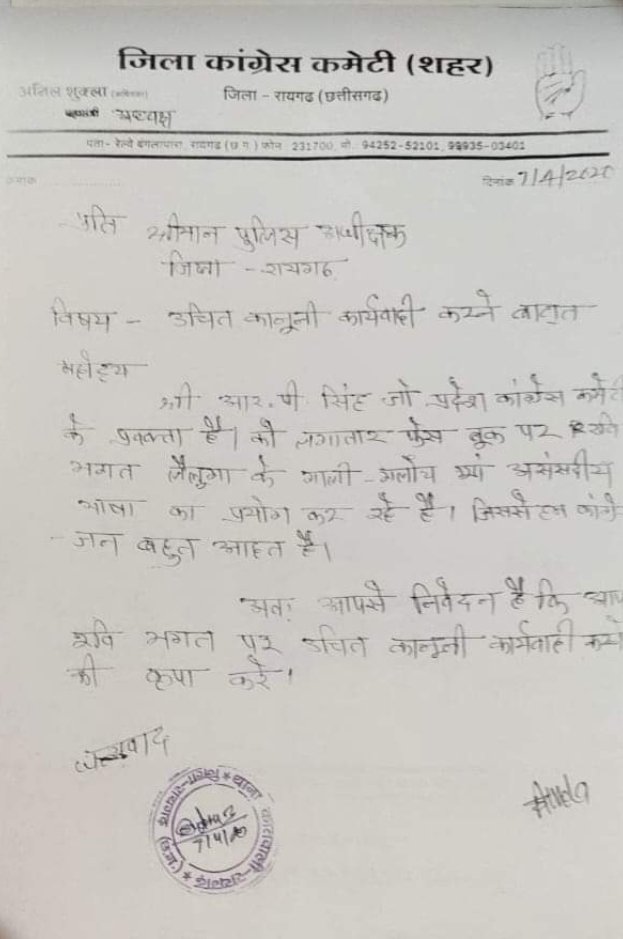 जिला कांग्रेस कमेटी (शहर)
अनिल शुक्ला
जिला - रायगढ (छत्तीसगढ)
अध्यक्ष
पता- रेल्वे बंगलापारा, रायगढ (छ ग.) फोन 231700, मो. 94252-52101, 99935-03401
क्रमांक
दिनांक 7/4/2020
प्रति श्रीमान पुलिस अधीक्षक
जिला - रायगढ
विषय - उचित कानूनी कार्यवाही करने बाबत
महोदय
श्री आर.पी सिंह जो प्रदेश कांग्रेस कमेटी
के प्रवक्ता है। को लगातार फेस बुक पर रवि
भगत लैलूंगा के गाली-गलोच असंसदीय
भाषा का प्रयोग कर रहे है। जिससे हम कांग्रे
जन बहुत आहत है।
अतः आपसे निवेदन है कि आप
रवि भगत पर उचित कानूनी कार्यवाही करने
की कृपा करे।
धन्यवाद
7/4/20